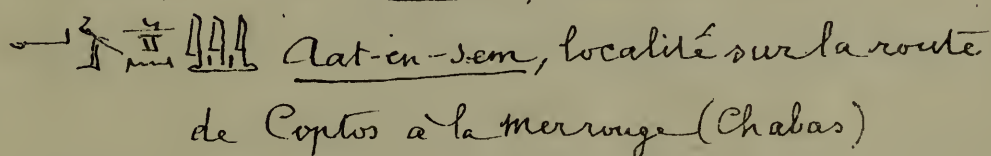 Aat-en-sem, localité sur la route
de Coptos à la mer rouge (Chabas)